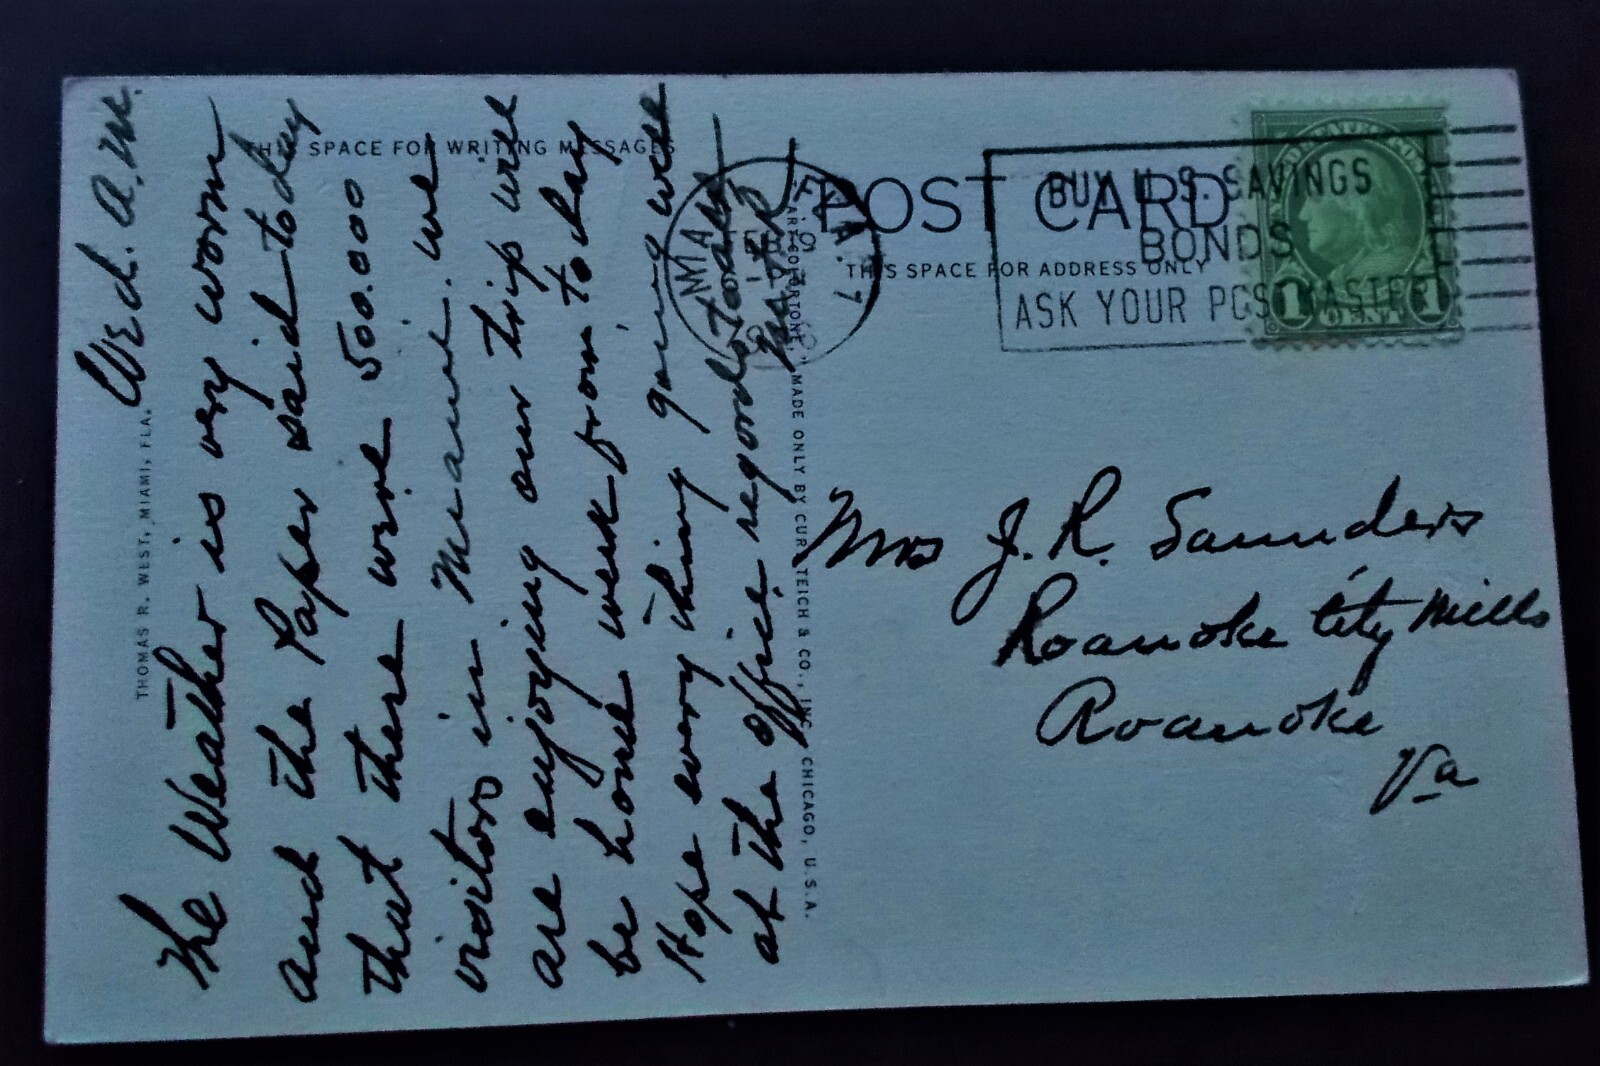 THIS SPACE FOR WRITING MESSAGES
POST CARD
THIS SPACE FOR ADDRESS ONLY
THOMAS R. WEST, MIAMI, FLA.
ART-COLORTONE, MADE ONLY BY CURT TEICH & CO., INC., CHICAGO, U.S.A.
MIAMI FLA. 7
FEB 9
BUY U. S. SAVINGS
BONDS
ASK YOUR POSTMASTER
1 CENT 1
Wed. A.M.
The Weather is very worm
and the Paper said to day
that there wire 500.000
visitors in Miami. we
are enjoying our trip will
be home week from to day
Hope every thing going well
at the office regards to all
Mrs J. R. Saunders
Roanoke City Mills
Roanoke
Va